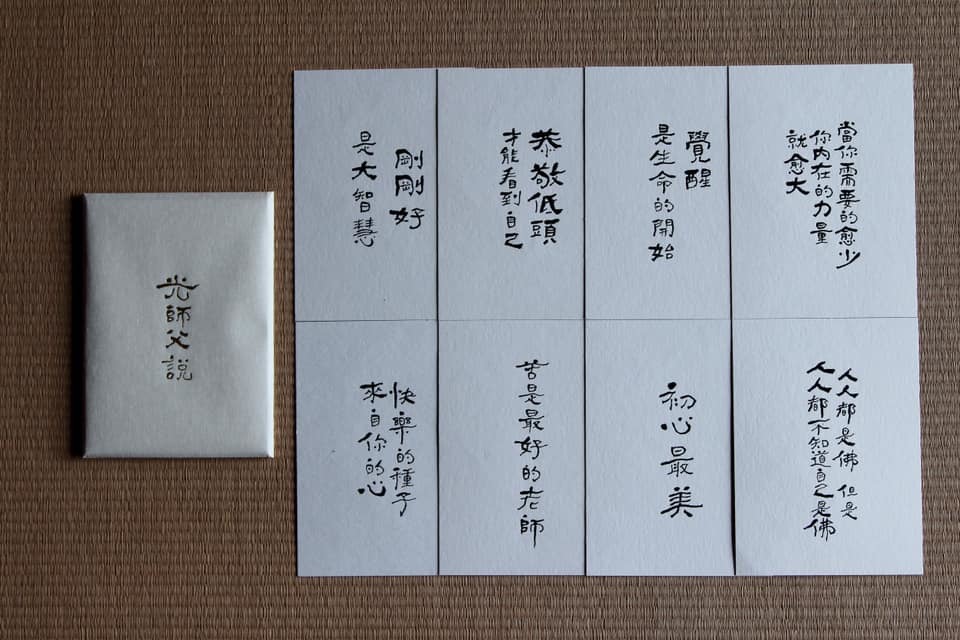 光師父説
當你需要的愈少
你內在的力量
就愈大
覺醒
是生命的開始
恭敬低頭
才能看到自己
剛剛好
是大智慧
人人都是佛 但是
人人都不知道自己是佛
初心最美
苦是最好的老師
快樂的種子
來自你的心